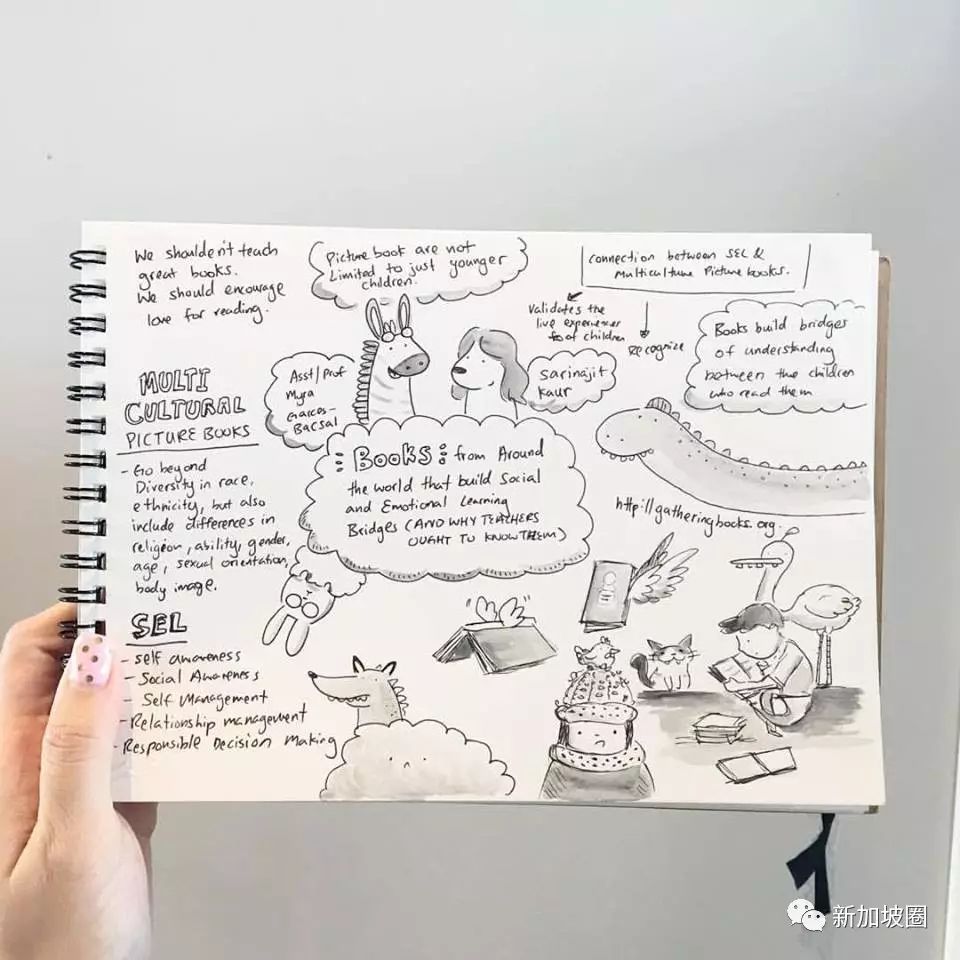 We shouldn't teach
great books.
We should encourage
love for reading.
Picture book are not
Limited to just younger
children.
connection between SEL &
Multiculture Picture books.
Validates the
live experiences
of children
Recognize
Books build bridges
of understanding
between the children
who read them
Asst/Prof
Myra
Garces-
Bacsal
Sarinajit
Kaur
MULTI
CULTURAL
PICTURE BOOKS
- Go beyond
Diversity in race,
ethnicity, but also
include differences in
religion, ability, gender,
age, sexual orientation,
body image.
:BOOKS: from Around
the world that build Social
and Emotional Learning
Bridges (AND WHY TEACHERS
OUGHT TO KNOW THEM)
http://gatheringbooks.org.
SEL
- self awareness
- Social Awareness
- Self Management
- Relationship management
- Responsible Decision Making
新加坡圈